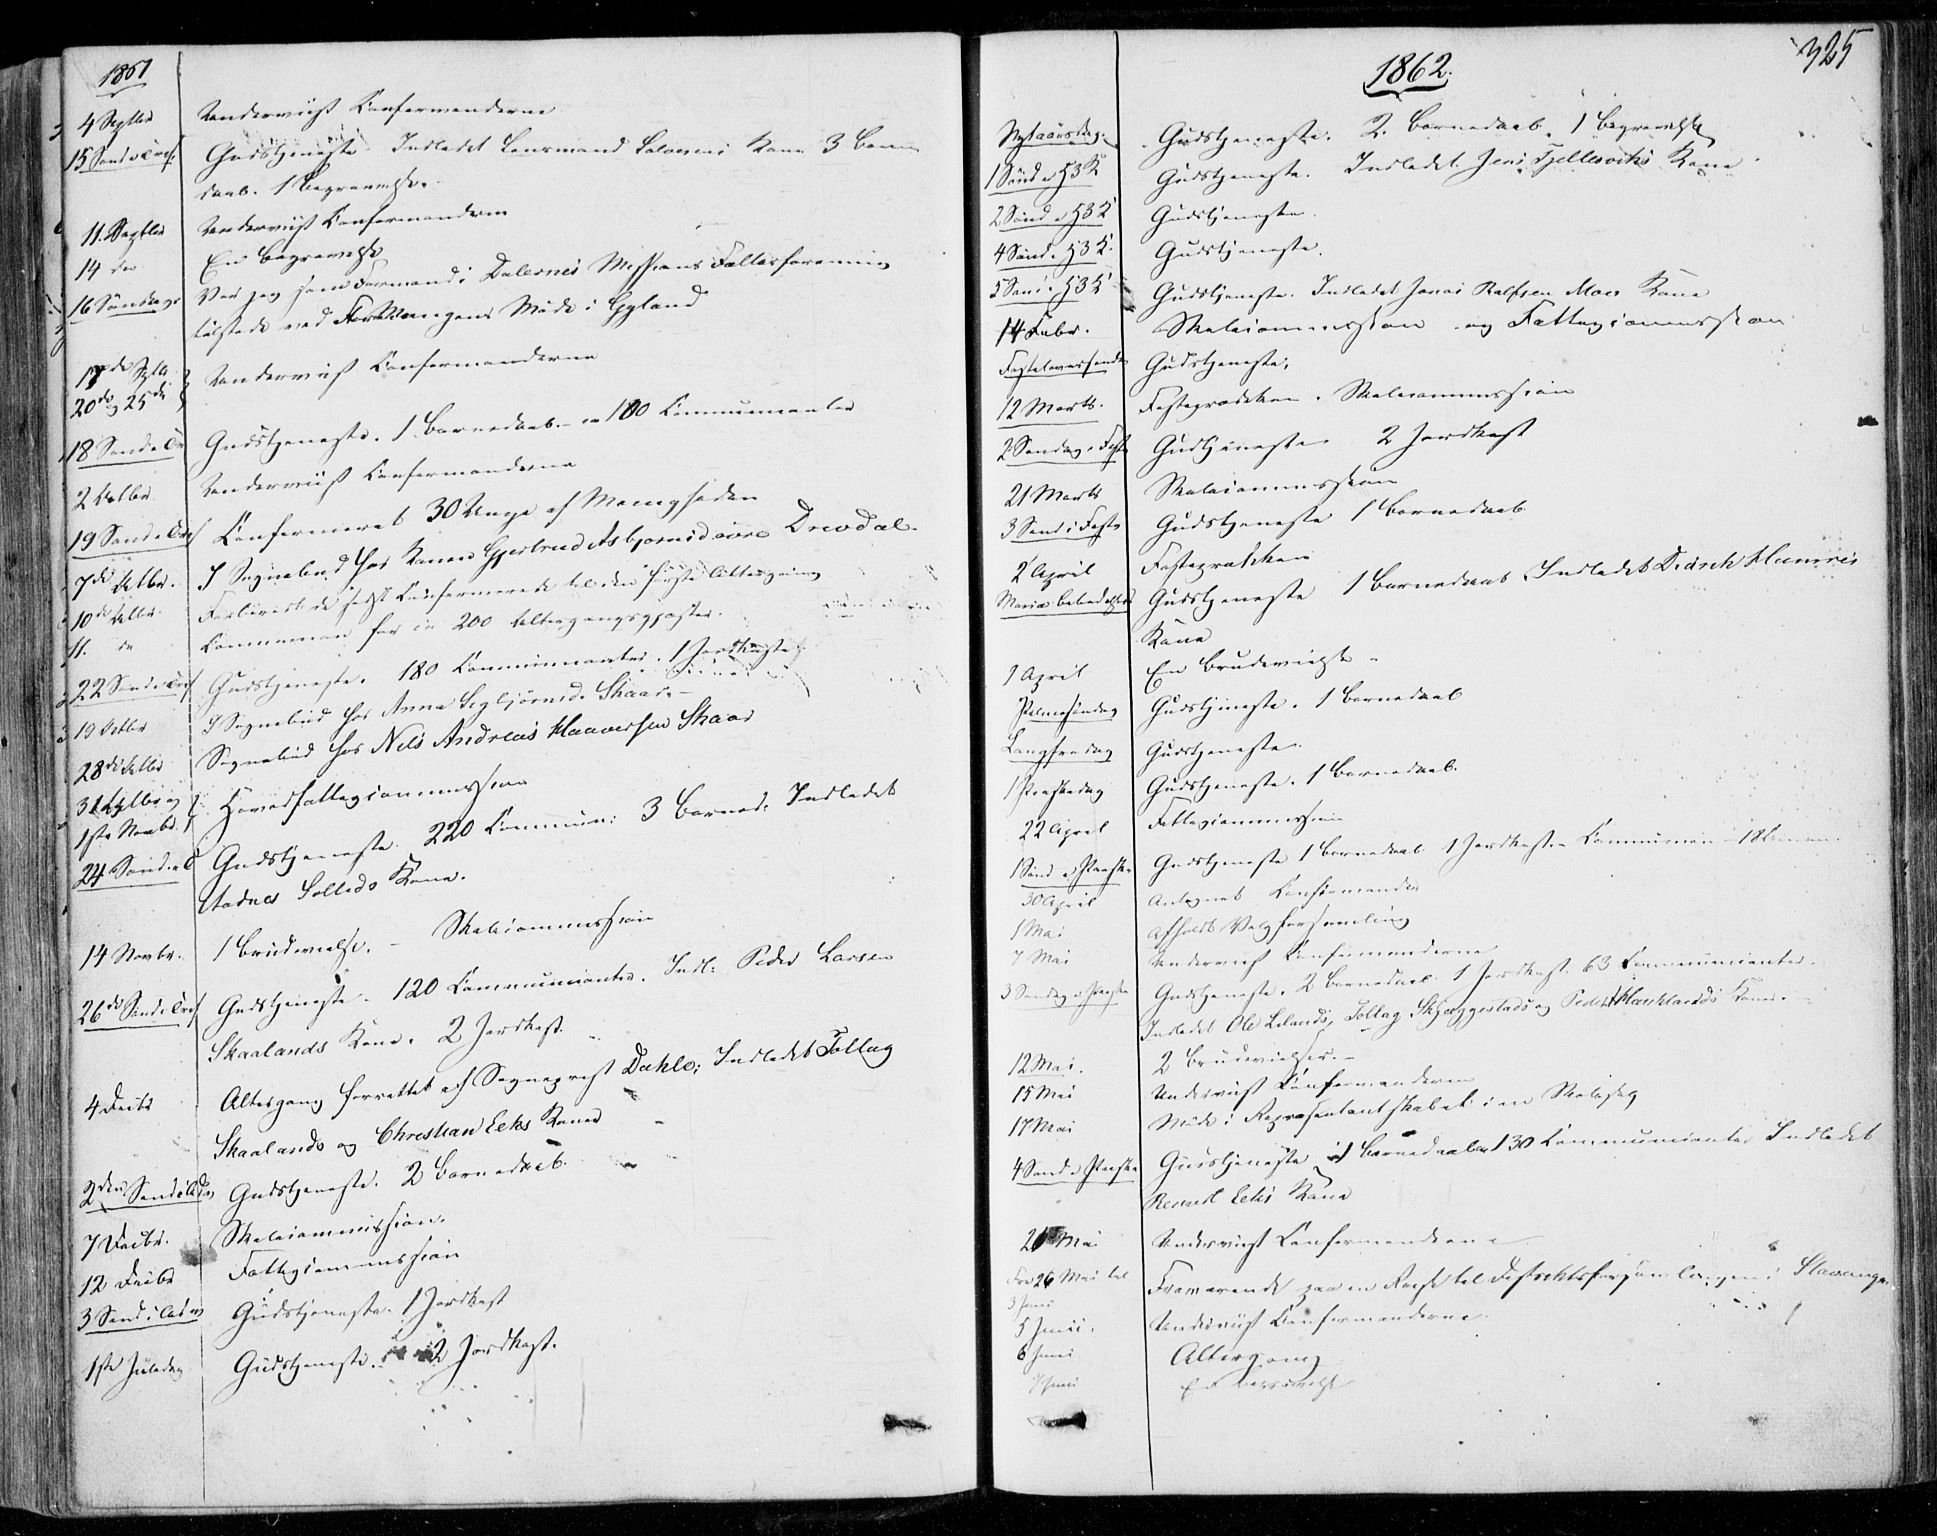 1861
4 Septbr Underviist Confirmanderne
15 Sond e Tref Gudstjeneste Indledet Lensmand Salvesens Kone 3 Barne
daab. 1 Begravelse.
11. Septbr Underviist Confirmanderne
14 do En Begravelse
16 Søndag Var jeg som Formand i Dalernes Missions Fællesforening
tilstede ved Foreningens Møde i Gyland
17de Septb
20de og 25de Underviist Confirmanderne
18 Sond e Tr Gudstjeneste. 1 Barnedaab. 100 Communicanter
2 Octbr. Underviist Confirmanderne
19 Sond e Tref Confirmeret 30 Unge af Menigheden
7de Octbr. I Sognebud hos Konen Gjertrud Asbjørnsd øvre Drevdal.
10de Octbr. de sidst Confirmerede til den første Altergang
11. do Communion for ca 200 Altergangsgjæster.
22 Sond e Tref Gudstjeneste. 180 Communicanter. 1 Jordkast
19 Octbr I Sognebud hos Anna Segljørnsd. Skaar.
28de Octbr Sognebud hos Nils Andreas Haaversen Skaar
31 Octbr og
1ste Novbr. Hovedfattigcommission
24 Sond e T Gudstjeneste. 220 Commun: 3 Barned. Indledet
Aadnes Solleds Kone.
14 Novbr. 1 Brudevielse. - Skolecommission
26de Sond e Tref Gudstjeneste. 120 Communicanter. Indl: Peder Larsen
Skaalands Kone. 2 Jordkast.
4 Decbr Altergang forrettet af Sognepræst Dahle; Indledet Tollag
Skaalands og Christian Eeks Koner
2den Sond i Adv Gudstjeneste. 2 Barnedaab.
7 Decbr. Skolecommission.
12 Decbr Fattigcommission
3 Sond i Adv Gudstjeneste. 1 Jordkast
1ste Juledag Gudstjeneste. 2 Jordkast.
325
1862.
Nytaarsdag. Gudstjeneste. 2 Barnedaab. 1 Begravelse
1 Sønd e H3K Gudstjeneste. Indledet Jens Tjellesviks Kone
2 Sønd e H3K Gudstjeneste.
4 Sønd e H3K. Gudstjeneste.
5 Sond e H3K Gudstjeneste. Indledet Jonas Ralfsen Moes Kone
14 Febr. Skolecommission og Fattigcommission
Fastelavnssøndag Gudstjeneste.
12 Marts. Fasteprædiken. Skolecommission
2 Søndag i Faste Gudstjeneste 2 Jordkast
21 Marts Skolecommission
3 Sond i Faste Gudstjeneste 1 Barnedaab.
2 April Fasteprædiken
Mariæ Bebudelse Gudstjeneste 1 Barnedaab Indledet Didrik Hamres
Kone
9 April En Brudevielse
Palmesøndag Gudstjeneste. 1 Barnedaab
Langfredag Gudstjeneste.
1 Paaskedag Gudstjeneste. 1 Barnedaab.
22 April Fattigcommission
1 Sønd e Paaske Gudstjeneste 1 Barnedaab 1 Jordkast. Communion
30 April Antegnet Confirmander
1 Mai Afholdt Valgforsamling
7 Mai Underviist Confirmanderne
3 Søndag e Paaske Gudstjeneste. 2 Barnedaab. 1 Jordkast. 63 Communicanter.
Indledet Ole Lelands, Tollag Skjeggestads og Peder Hauklands Koner.
12 Mai. 2 Brudevielser.
15 Mai Underviist Confirmanderne
17 Mai Møde i Repræsentantskabet i en Skolesag
4 Sond e Paaske Gudstjeneste 1 Barnedaab 130 Communicanter Indledet
Berndt Eeks Kone
21 Mai Underviist Confirmanderne
Fra 26 Mai til
3 Juni Fraværende paa en Reise til Distriktsforsamlingen i Stavanger
5 Juni. Underviist Confirmanderne.
6 Juni Altergang
7 Juni En Begravelse